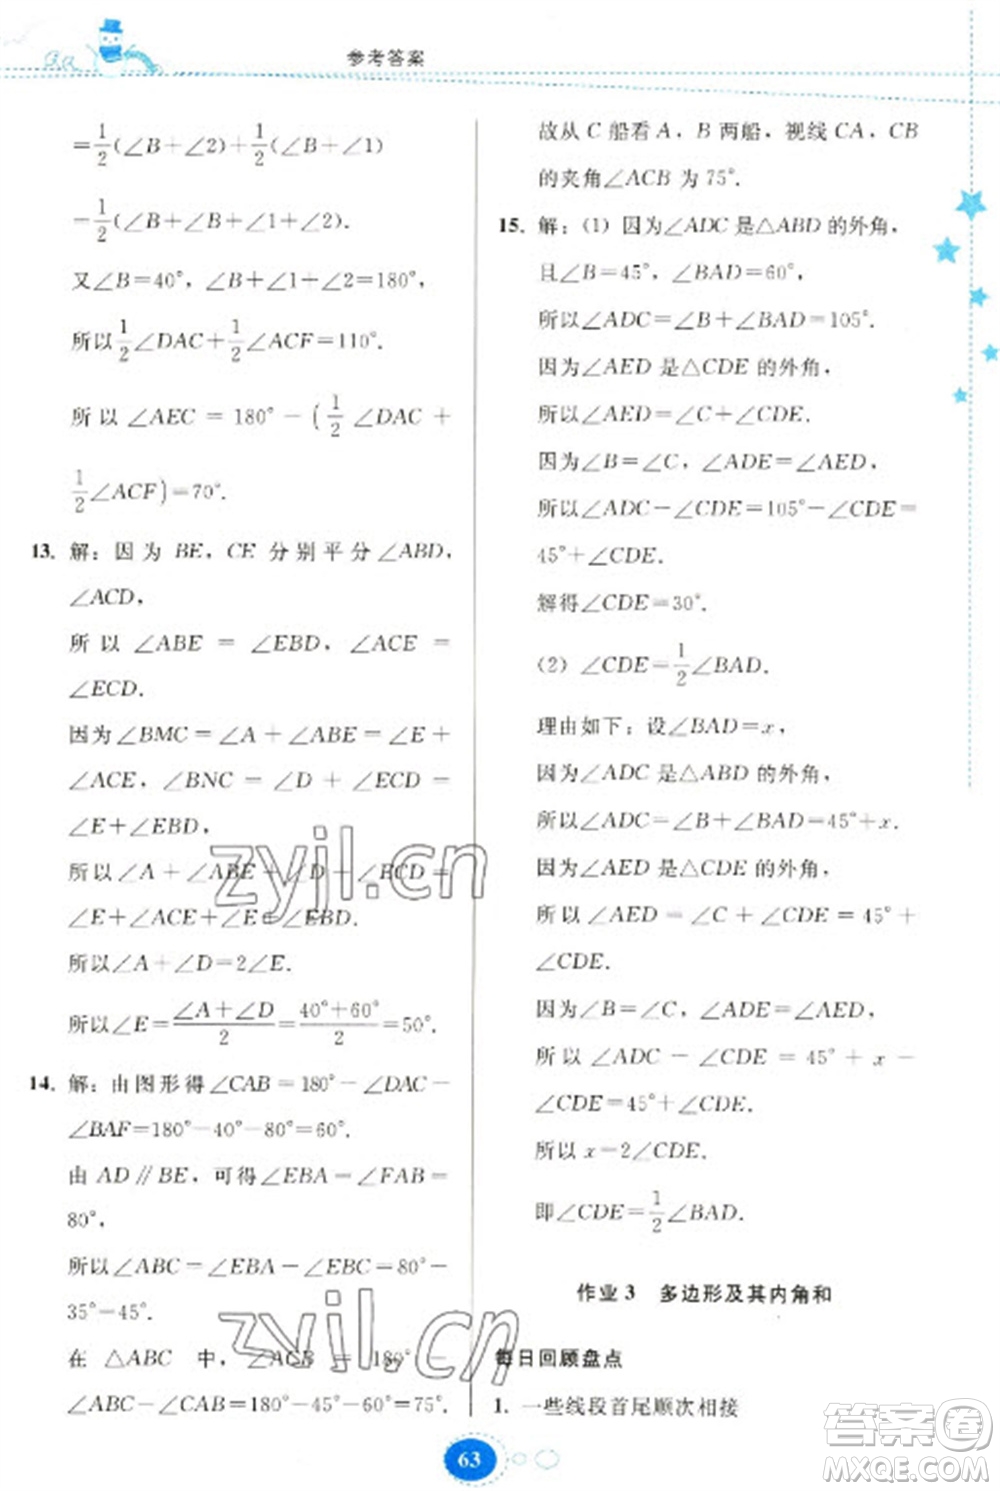 参考答案
=1/2(∠B+∠2)+1/2(∠B+∠1)
=1/2(∠B+∠B+∠1+∠2).
又∠B=40°,∠B+∠1+∠2=180°,
所以1/2∠DAC+1/2∠ACF=110°.
所以∠AEC=180°-(1/2∠DAC+
1/2∠ACF)=70°.
13. 解:因为 BE,CE 分别平分∠ABD,
∠ACD,
所以∠ABE=∠EBD,∠ACE=
∠ECD.
因为∠BMC=∠A+∠ABE=∠E+
∠ACE,∠BNC=∠D+∠ECD=
∠E+∠EBD,
所以∠A+∠ABE+∠D+∠ECD=
∠E+∠ACE+∠E+∠EBD.
所以∠A+∠D=2∠E.
所以∠E=(∠A+∠D)/2=(40°+60°)/2=50°.
14. 解:由图形得∠CAB=180°-∠DAC-
∠BAF=180°-40°-80°=60°.
由 AD∥BE,可得∠EBA=∠FAB=
80°,
所以∠ABC=∠EBA-∠EBC=80°-
35°=45°.
在△ABC 中,∠ACB=180°-
∠ABC-∠CAB=180°-45°-60°=75°.
故从 C 船看 A,B 两船,视线 CA,CB
的夹角∠ACB 为 75°.
15. 解:(1) 因为∠ADC 是△ABD 的外角,
且∠B=45°,∠BAD=60°,
所以∠ADC=∠B+∠BAD=105°.
因为∠AED 是△CDE 的外角,
所以∠AED=∠C+∠CDE.
因为∠B=∠C,∠ADE=∠AED,
所以∠ADC-∠CDE=105°-∠CDE=
45°+∠CDE.
解得∠CDE=30°.
(2) ∠CDE=1/2∠BAD.
理由如下:设∠BAD=x,
因为∠ADC 是△ABD 的外角,
所以∠ADC=∠B+∠BAD=45°+x.
因为∠AED 是△CDE 的外角,
所以∠AED=∠C+∠CDE=45°+
∠CDE.
因为∠B=∠C,∠ADE=∠AED,
所以∠ADC-∠CDE=45°+x-
∠CDE=45°+∠CDE.
所以 x=2∠CDE.
即∠CDE=1/2∠BAD.
作业 3 多边形及其内角和
每日回顾盘点
1. 一些线段首尾顺次相接
63
zyjl.cn
zyjl.cn
答案圈
MXQE.COM